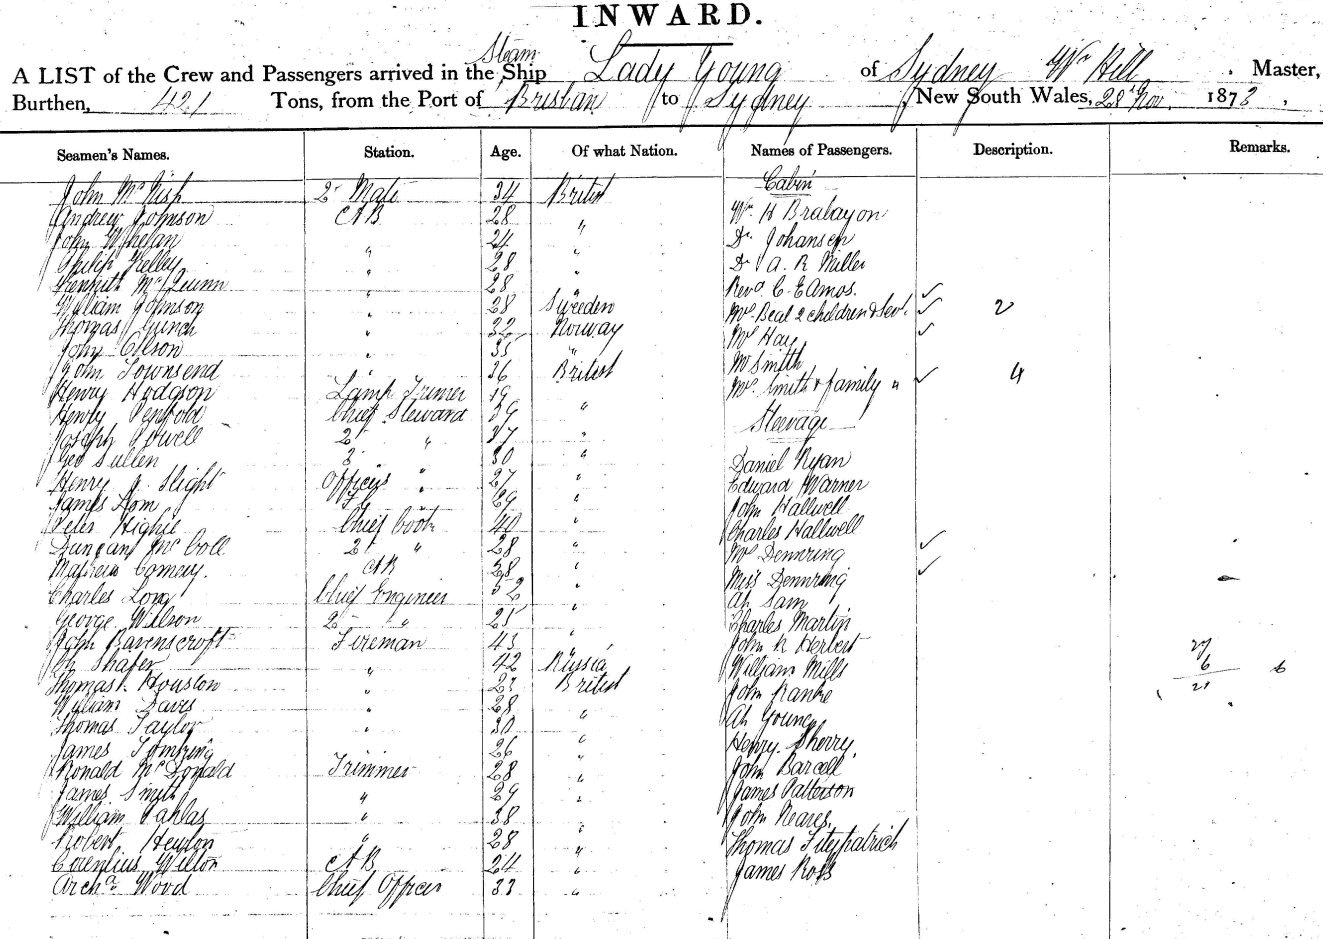 INWARD.
A LIST of the Crew and Passengers arrived in the Steam Ship Lady Young of Sydney Wm Hill Master,
Burthen, 421 Tons, from the Port of Brisban to Sydney, New South Wales, 28th Nov. 1873.
Seamen's Names. Station. Age. Of what Nation. Names of Passengers. Description. Remarks.
John McNish 2 Mate 34 British Cabin
Andrew Johnson AB 28 " Wm H Brabayon
John Whelan " 24 " Dr Johansen
Philip Galley " 28 " Dr A. R Miller
Kenneth McQuinn " 28 " Revd C. E Amos.
William Johnson " 28 Sweeden Mrs Beal 2 children & Sevt. 2
Thomas " 32 Norway Mrs Hay
John Olson " 35 " Mr Smith
John Townsend " 36 British Mrs Smith & family " 4
Henry Hodgson Lamp Trimer 19
Henry Penfold Chief Steward 39 " Steerage
Joseph Powell 2 " 37 "
Geo Sullen 3 30 " Daniel Ryan
Henry J. Slight Officers " 27 " Edward Warner
James Lom 29 " John Hallwell
Peter Highie Chief Cook 40 " Charles Hallwell
Duncan McColl 2 " 28 " Mrs Dennring
Mathew Comery. AB 38 " Miss Dennring
Charles Long Chief Engineer 52 Ah Sam
George Wilson 2 " 25 " Charles Martin
John Ravenscroft Fireman 43 " John R Herbert
Ch Shafer " 42 Russia William Mills
Thomas Houston " 23 British John Ranke
William Davis " 28 " Ah Young
Thomas Taylor " 30 " Henry Sherry
James Tomkins 26 " John Barcell
Ronald McDonald Trimmer 28 " James Patterson
James Smith " 29 " John Neares.
William Pahlas " 38 " Thomas Fitzpatrick
Robert Heylon " 28 " James Ross
Cornelius Wilton AB 24 "
Archd Wood Chief Officer 33 "
27
6 6
21